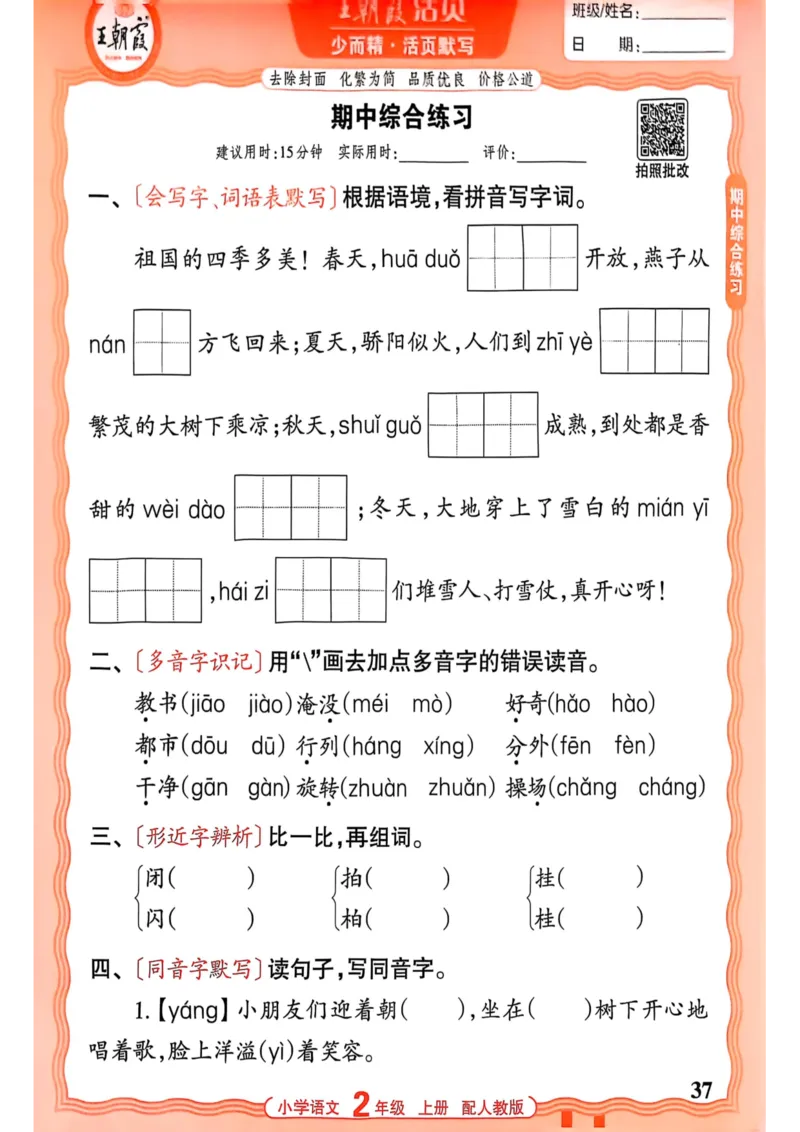 王朝霞
王朝霞活页
少而精·活页默写
班级/姓名:
日 期:
去除封面 化繁为简 品质优良 价格公道
期中综合练习
建议用时:15分钟 实际用时: 评价:
拍照批改
期中综合练习
一、〔会写字、词语表默写〕根据语境,看拼音写字词。
祖国的四季多美！春天,huā duǒ 开放,燕子从
nán 方飞回来;夏天,骄阳似火,人们到zhī yè
繁茂的大树下乘凉;秋天,shuǐ guǒ 成熟,到处都是香
甜的 wèi dào ;冬天,大地穿上了雪白的 mián yī
,hái zi 们堆雪人、打雪仗,真开心呀！
二、〔多音字识记〕用“\”画去加点多音字的错误读音。
教书(jiāo jiào) 淹没(méi mò) 好奇(hǎo hào)
都市(dōu dū) 行列(háng xíng) 分外(fēn fèn)
干净(gān gàn) 旋转(zhuàn zhuǎn) 操场(chǎng cháng)
三、〔形近字辨析〕比一比,再组词。
闭( ) 拍( ) 挂( )
闪( ) 柏( ) 桂( )
四、〔同音字默写〕读句子,写同音字。
1.【yáng】小朋友们迎着朝( ),坐在( )树下开心地
唱着歌,脸上洋溢(yì)着笑容。
37
小学语文 2年级 上册 配人教版